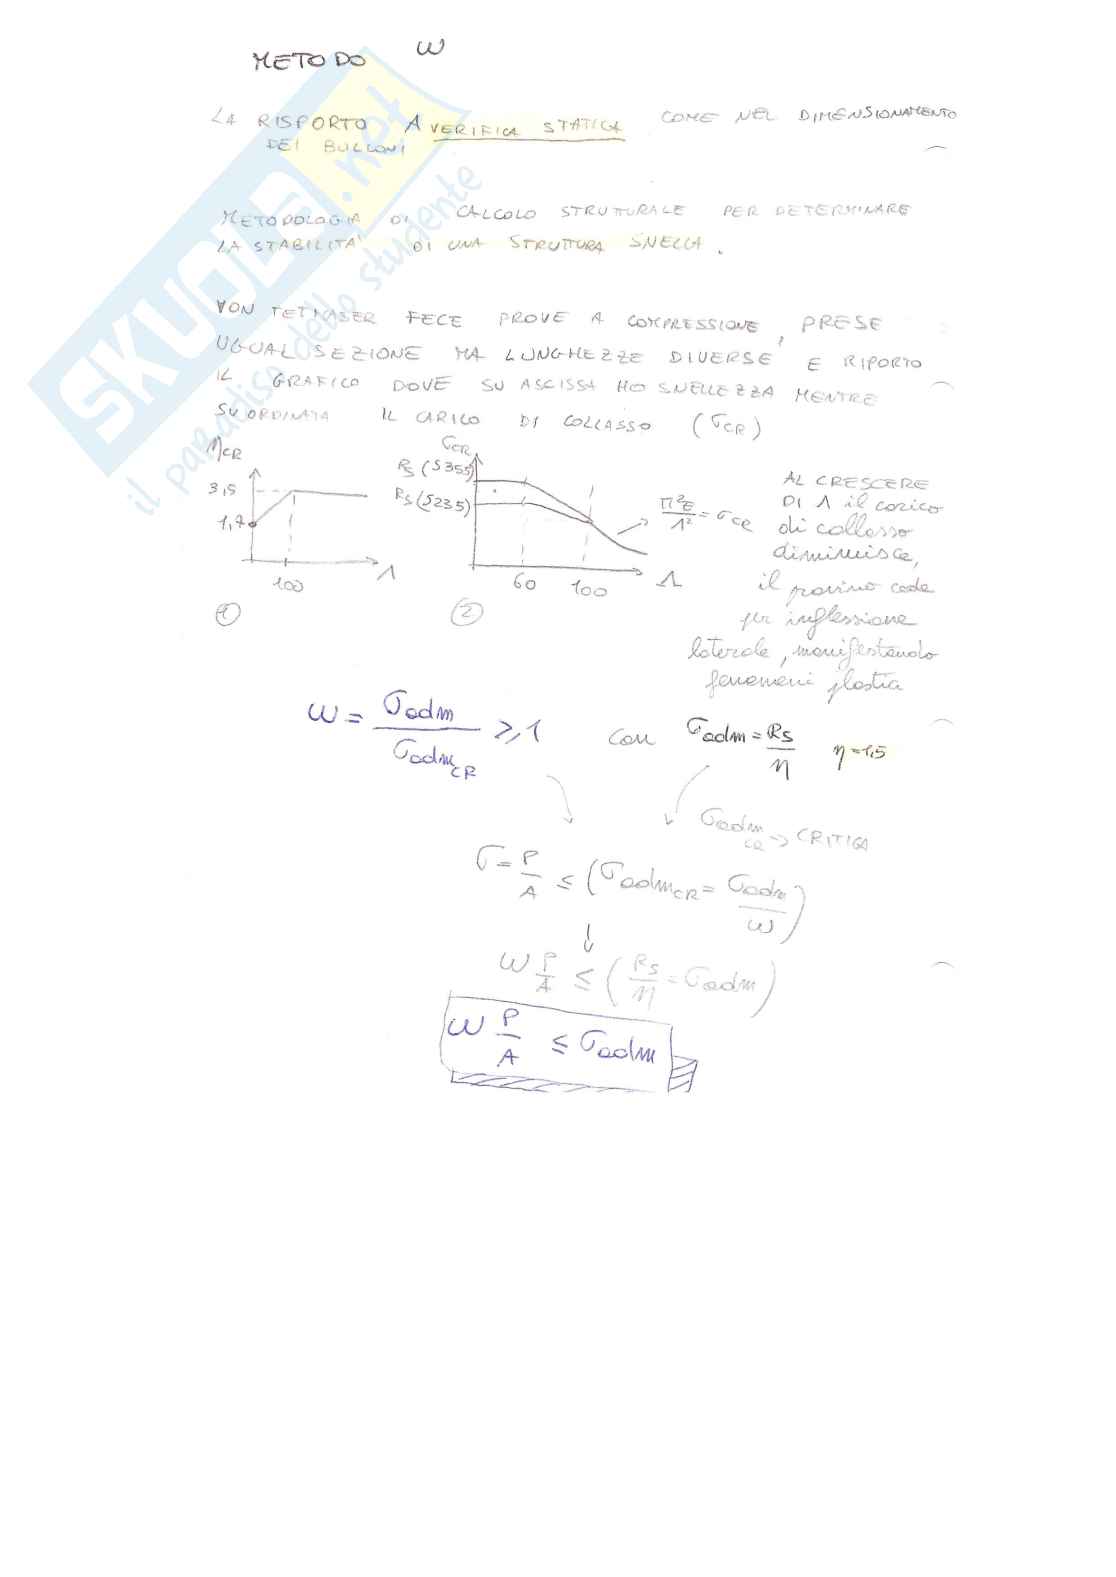 METODO ω
LA RISPORTO A VERIFICA STATICA COME NEL DIMENSIONAMENTO
DEI BULLONI
METODOLOGIA DI CALCOLO STRUTTURALE PER DETERMINARE
LA STABILITA' DI UNA STRUTTURA SNELLA.
VON TETMASER FECE PROVE A COMPRESSIONE, PRESE
UGUAL SEZIONE MA LUNGHEZZE DIVERSE E RIPORTO
IL GRAFICO DOVE SU ASCISSA HO SNELLEZZA MENTRE
SU ORDINATA IL CARICO DI COLLASSO (σCR)
ηCR
3,5
1,7
100
Λ
①
σCR
RS (S355)
RS (S235)
60
100
Λ
②
π²E/Λ² = σCR
AL CRESCERE
DI Λ il carico
di collasso
diminuisce,
il provino cede
per inflessione
laterale, manifestando
fenomeni plastici
ω = σadm/σadmCR ≥ 1 con σadm = RS/η η=1,5
σadmCR → CRITICA
σ = P/A ≤ (σadmCR = σadm/ω)
ω P/A ≤ (RS/η = σadm)
ω P/A ≤ σadm
SKUOLA.net
il paradiso dello studente